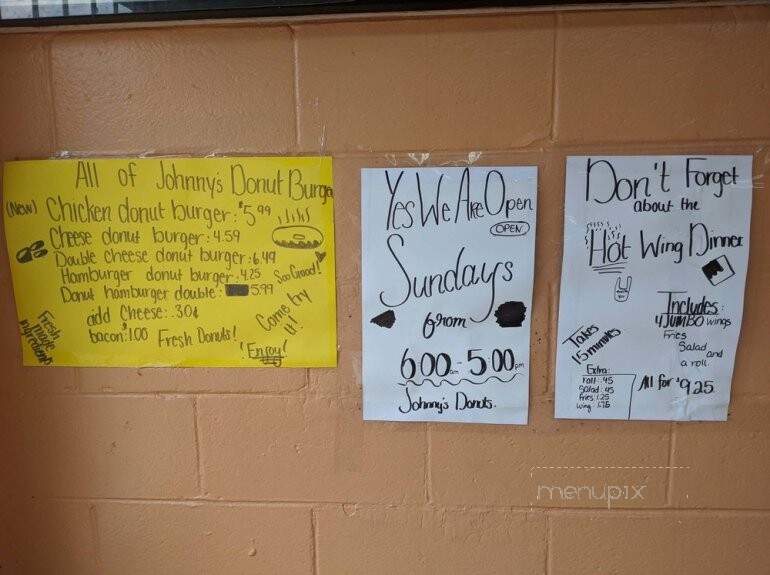 All of Johnny's Donut Burger
(New) Chicken donut burger: $5.99
Cheese donut burger: 4.59
Double cheese donut burger: 6.49
Hamburger donut burger: 4.25
Donut hamburger double: 5.99
add Cheese: .30¢
bacon: $1.00
Fresh Donuts!
Soo Good!
Come try it!
Fresh made ingredients
!Enjoy!
Yes We Are Open
OPEN
Sundays
from
6:00am - 5:00pm
Johnny's Donuts.
Don't Forget
about the
Hot Wing Dinner
Includes:
4 JUMBO wings
Fries
Salad
and
a roll.
Takes
15 minutes
All for $9.25
Extra:
roll: .45
Salad: .45
fries: 1.25
wing: 1.76
menupix